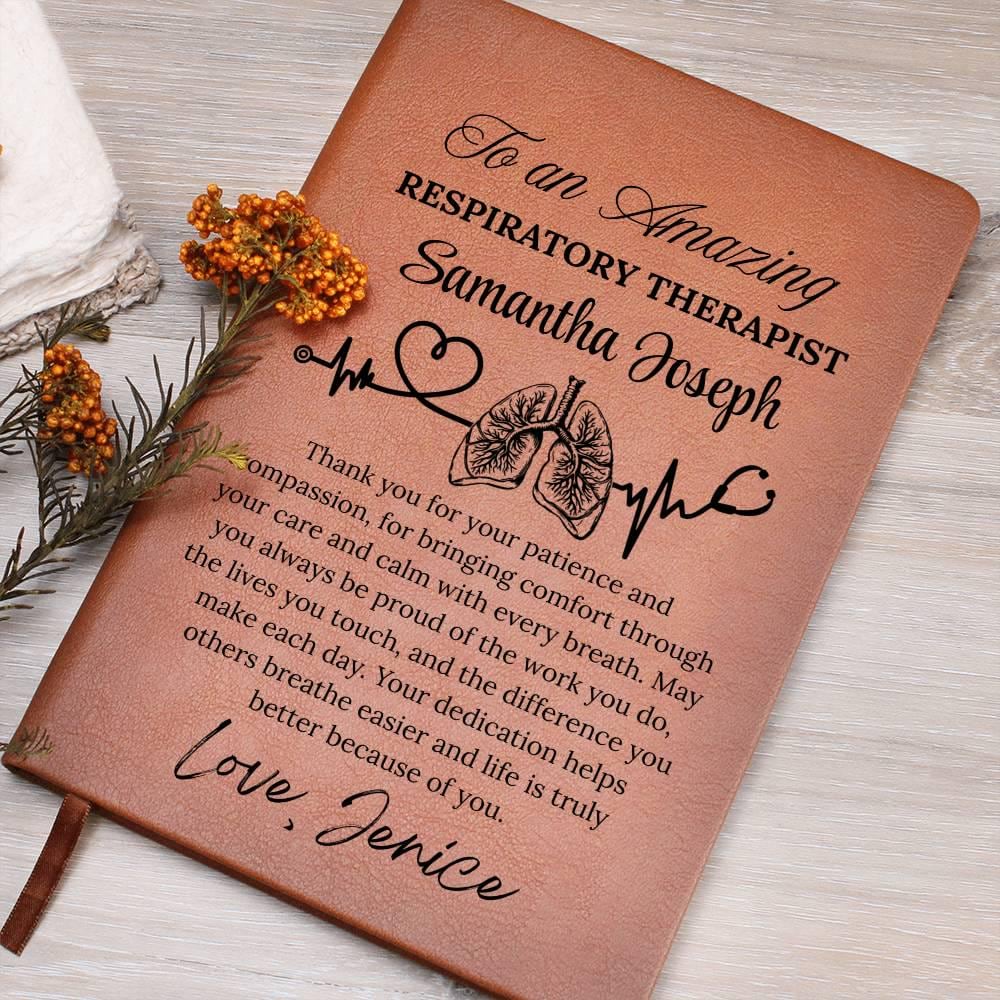 To an Amazing
RESPIRATORY THERAPIST
Samantha Joseph
Thank you for your patience and
compassion, for bringing comfort through
your care and calm with every breath. May
you always be proud of the work you do,
the lives you touch, and the difference you
make each day. Your dedication helps
others breathe easier and life is truly
better because of you.
Love, Jenice